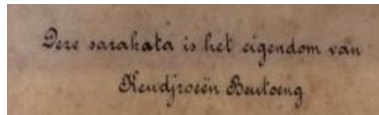 Deze sarakata is het eigendom van
Keudjroeën Beutoeng